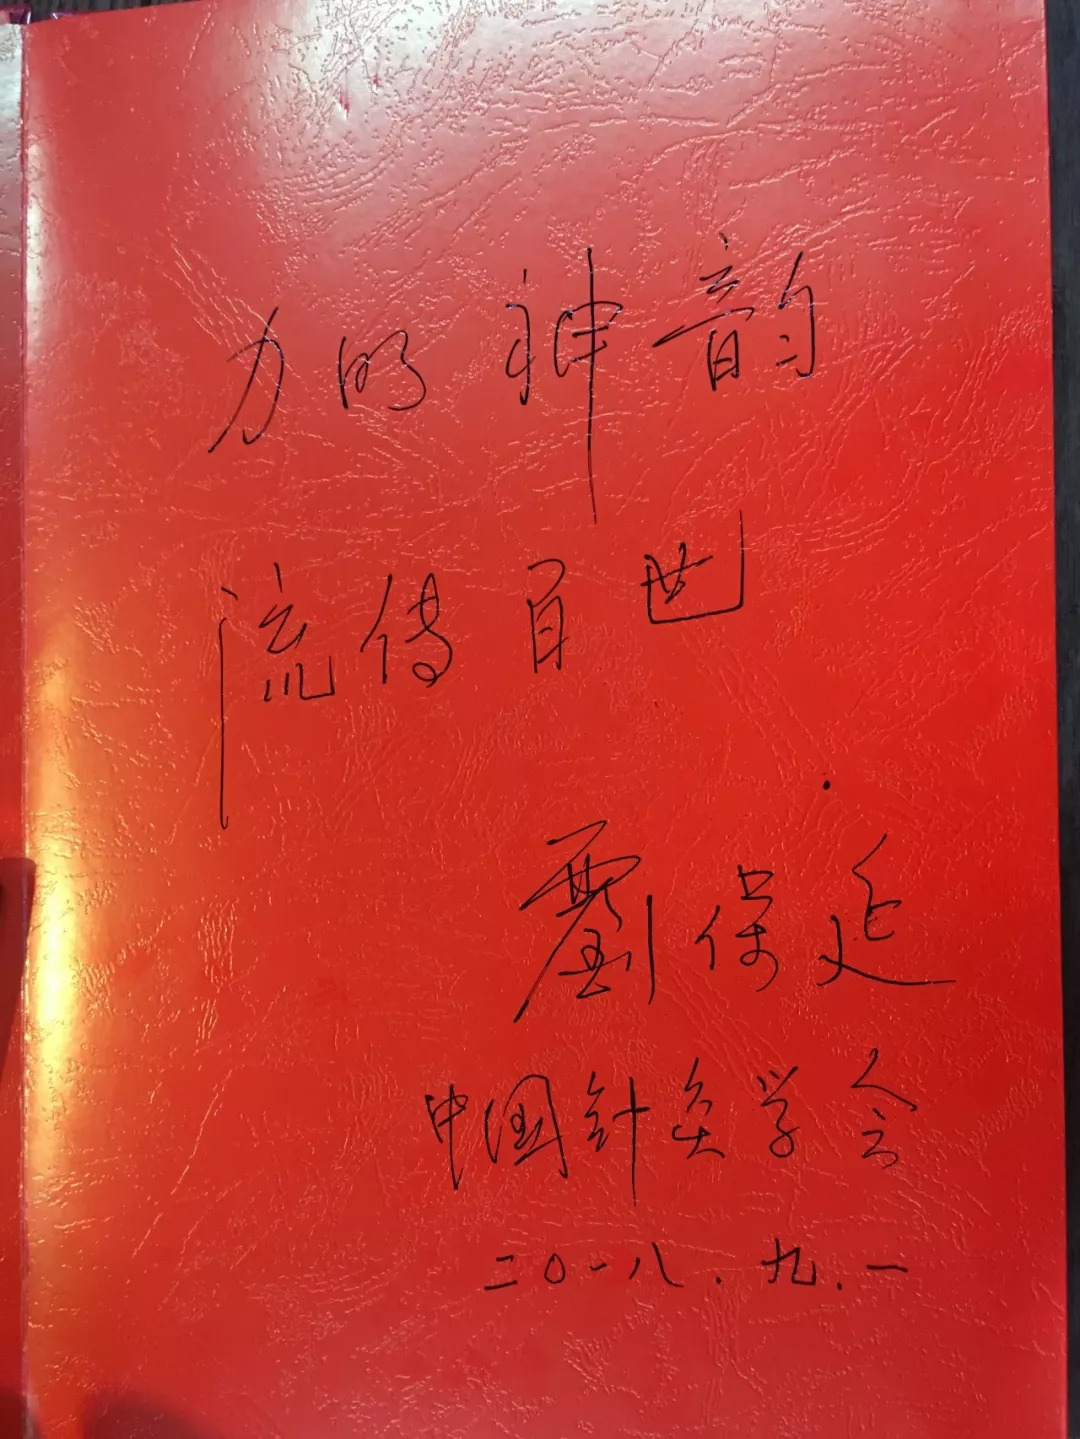 力的神韵
流传百世
劉保延
中国针灸学会
二〇一八.九.一